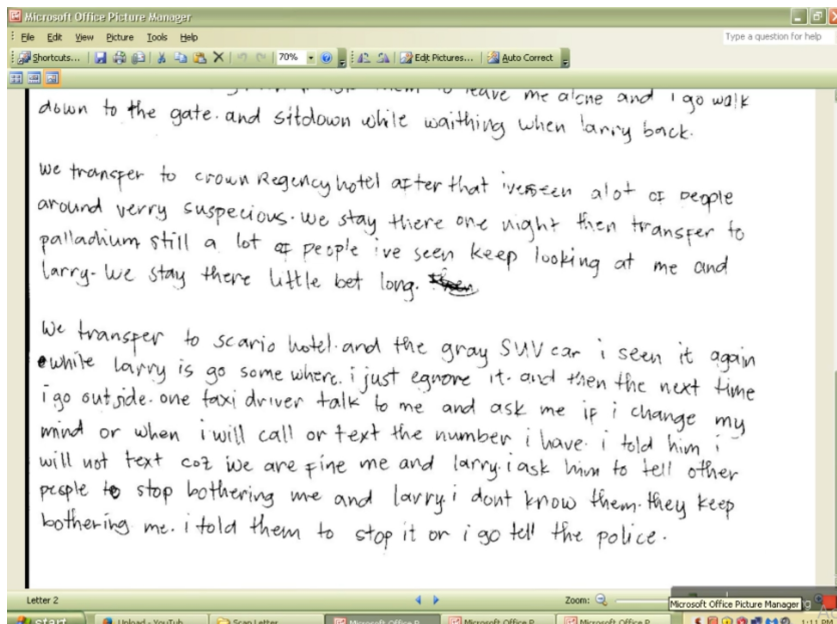 Microsoft Office Picture Manager
File Edit View Picture Tools Help
Type a question for help
Shortcuts... 70% Edit Pictures... Auto Correct
to leave me alone and i go walk
down to the gate. and sitdown while waithing when larry back.
We transfer to crown Regency hotel after that i'veseen alot of people
around verry suspecious. we stay there one night then transfer to
palladhium still a lot of people ive seen keep looking at me and
larry. We stay there little bet long.
We transfer to scario hotel. and the gray SUV car i seen it again
while larry is go some where. i just egnore it. and then the next time
i go outside. one taxi driver talk to me and ask me if i change my
mind or when i will call or text the number i have. i told him i
will not text coz we are fine me and larry. i ask him to tell other
people to stop bothering me and larry. i dont know them. they keep
bothering me. i told them to stop it or i go tell the police.
Letter 2
Zoom:
Microsoft Office Picture Manager
start Upload - YouTub... Scan Letter Microsoft Office P... Microsoft Office P... Microsoft Office P... 1:11 PM